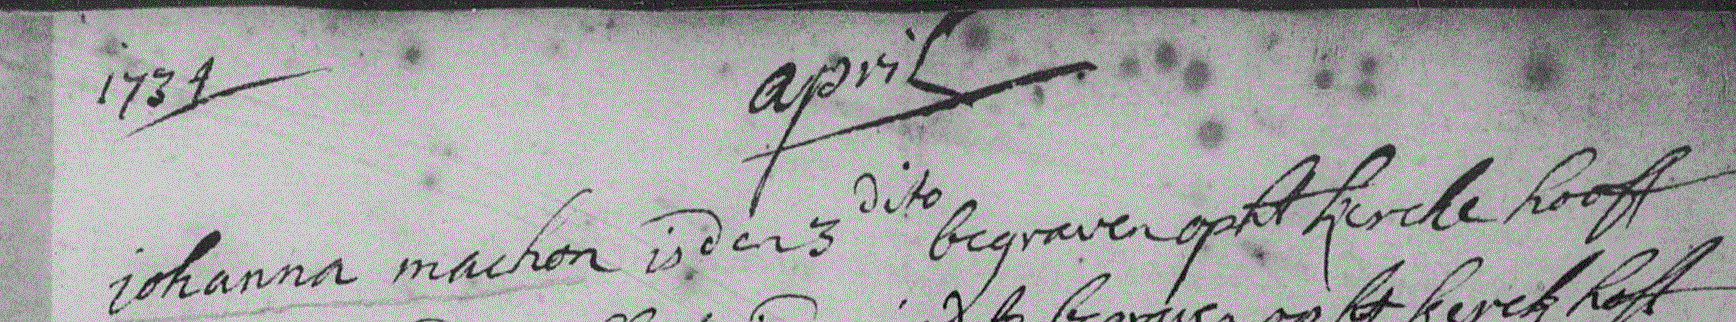 1734 april
johanna machon is den 3 dito begraven op ht kercke hooft
begraven op ht kerck hoft